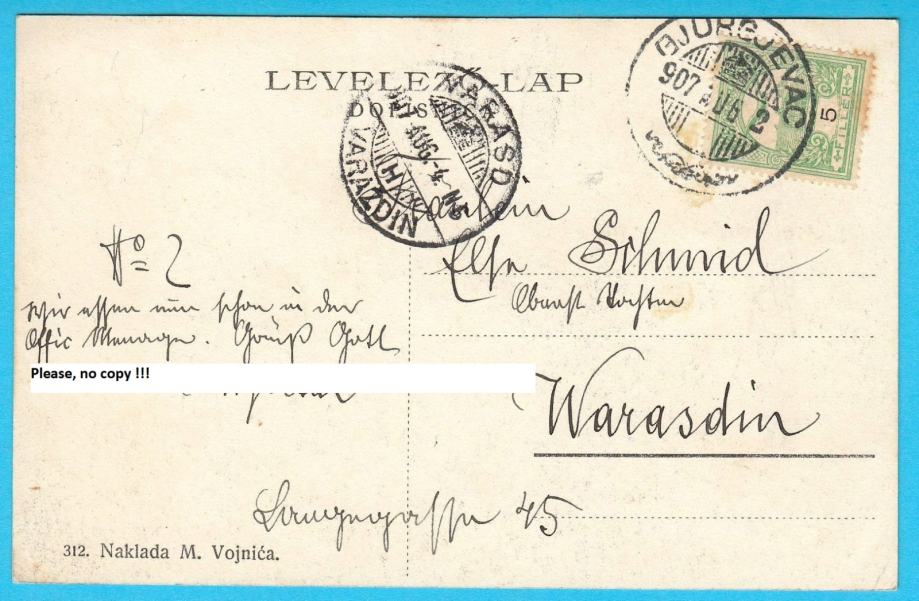 LEVELEZŐ-LAP
DOPIS
GJURGJEVAC
907 AUG 2
5
FILLER
VARASD
AUG. -4. N
VARAŽDIN
Fräulein
Else Schmid
Oberst Tochter
Warasdin
No 2
Wir essen nun schon in der
Offic Menage. Grüß Gott
Please, no copy !!!
Langegasse 45
312. Naklada M. Vojnića.